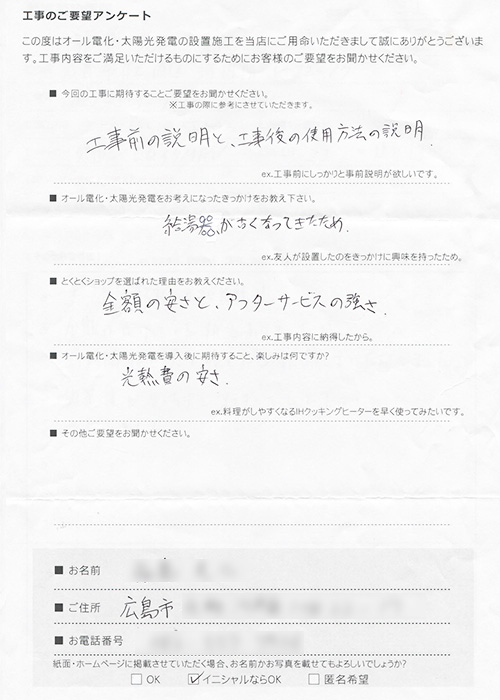 工事のご要望アンケート
この度はオール電化・太陽光発電の設置施工を当店にご用命いただきまして誠にありがとうございま
す。工事内容をご満足いただけるものにするためにお客様のご要望をお聞かせください。
■ 今回の工事に期待することご要望をお聞かせください。
※工事の際に参考にさせていただきます。
工事前の説明と、工事後の使用方法の説明.
ex.工事前にしっかりと事前説明が欲しいです。
■ オール電化・太陽光発電をお考えになったきっかけをお教え下さい。
給湯器が古くなってきたため.
ex.友人が設置したのをきっかけに興味を持ったため。
■ とくとくショップを選ばれた理由をお教えください。
金額の安さと、アフターサービスの強さ.
ex.工事内容に納得したから。
■ オール電化・太陽光発電を導入後に期待すること、楽しみは何ですか?
光熱費の安さ.
ex.料理がしやすくなるIHクッキングヒーターを早く使ってみたいです。
■ その他ご要望をお聞かせください。
■ お名前
■ ご住所 広島市
■ お電話番号
紙面・ホームページに掲載させていただく場合、お名前かお写真を載せてもよろしいでしょうか?
□ OK ☑ イニシャルならOK □ 匿名希望